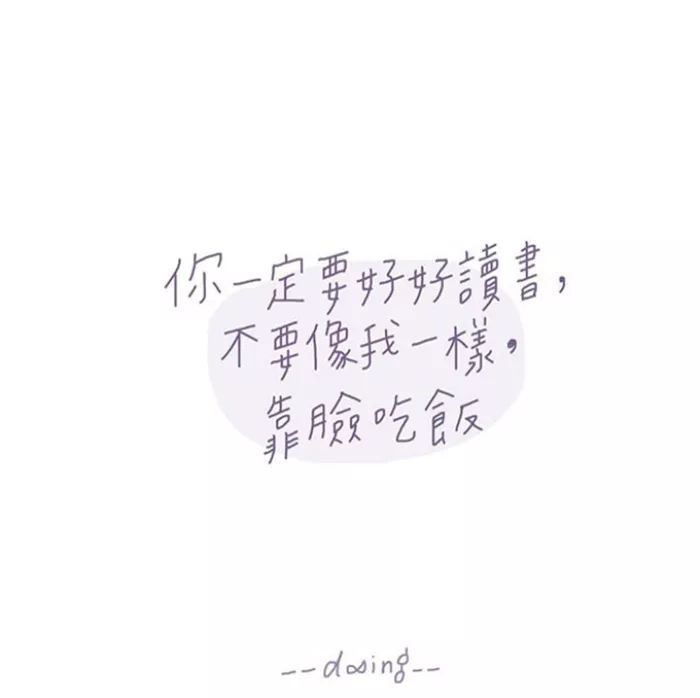 你一定要好好讀書，
不要像我一樣，
靠臉吃飯
--dosing--